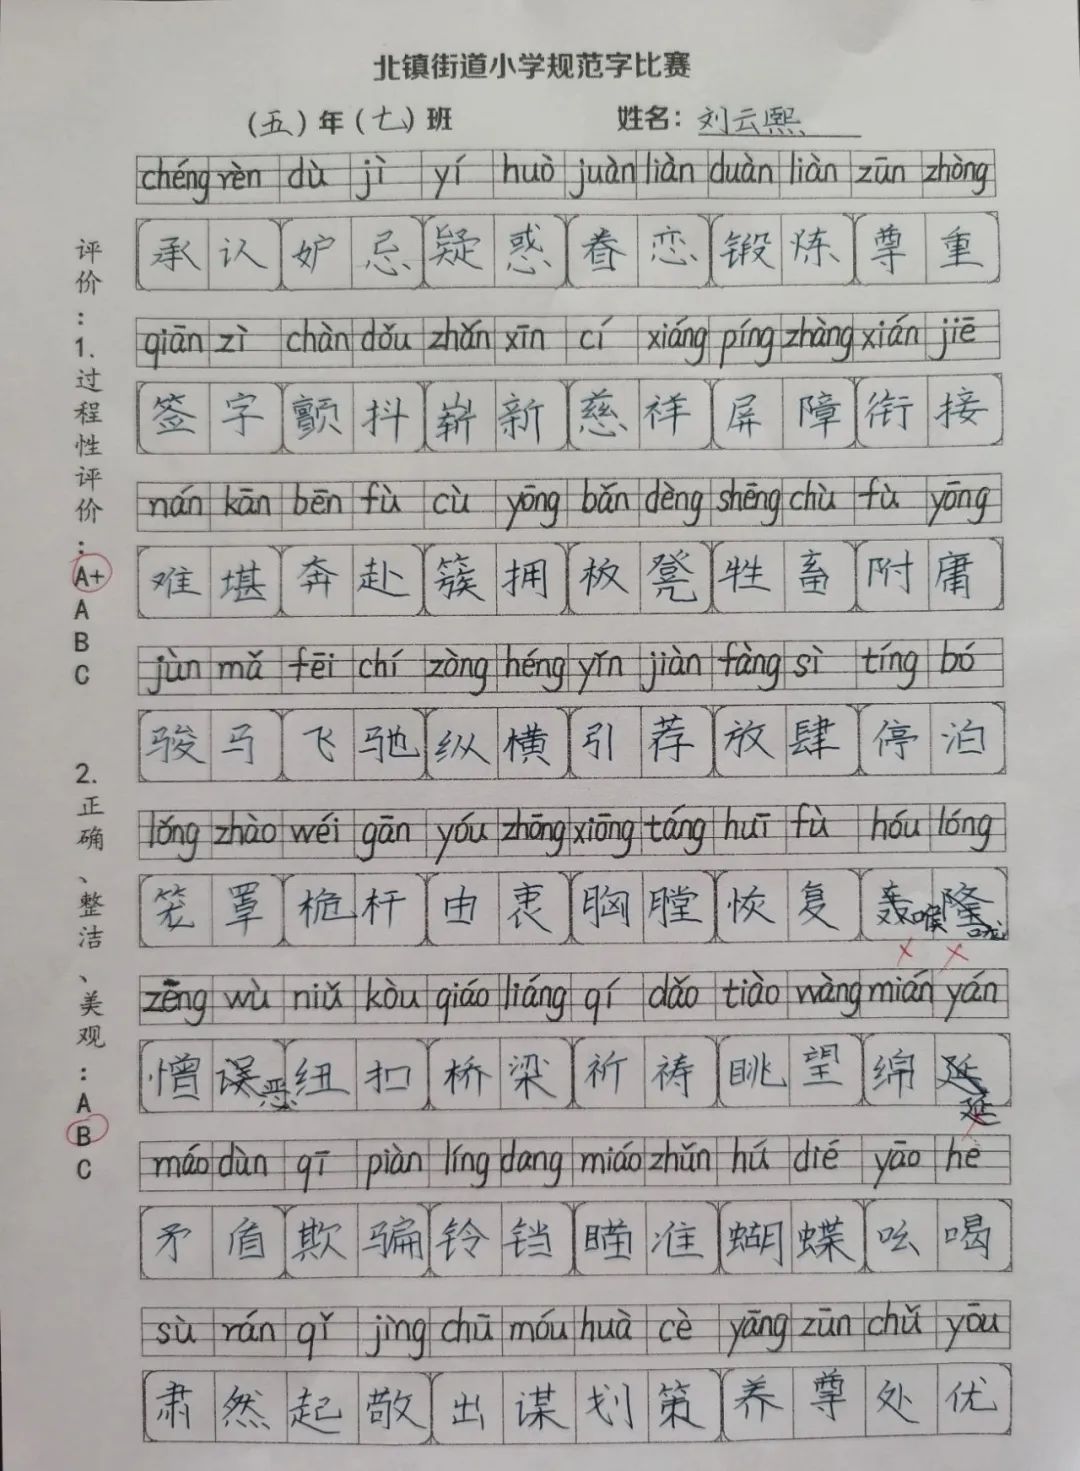 北镇街道小学规范字比赛
（五）年（七）班 姓名：刘云熙
chéng rèn dù jì yí huò juàn liàn duàn liàn zūn zhòng
承认 妒忌 疑惑 眷恋 锻炼 尊重
qiān zì chàn dǒu zhǎn xīn cí xiáng píng zhàng xián jiē
签字 颤抖 崭新 慈祥 屏障 衔接
nán kān bēn fù cù yōng bǎn dèng shēng chù fù yōng
难堪 奔赴 簇拥 板凳 牲畜 附庸
jùn mǎ fēi chí zòng héng yǐn jiàn fàng sì tíng bó
骏马 飞驰 纵横 引荐 放肆 停泊
lǒng zhào wéi gān yóu zhōng xiōng táng huī fù hóu lóng
笼罩 桅杆 由衷 胸膛 恢复 轰隆
喉咙
zēng wù niǔ kòu qiáo liáng qí dǎo tiào wàng mián yán
憎误 纽扣 桥梁 祈祷 眺望 绵延
恶 延
máo dùn qī piàn líng dang miáo zhǔn hú dié yāo hè
矛盾 欺骗 铃铛 瞄准 蝴蝶 吆喝
sù rán qǐ jìng chū móu huà cè yǎng zūn chǔ yōu
肃然起敬 出谋划策 养尊处优
评价：1.过程性评价：A+ A B C
2.正确、整洁、美观：A B C